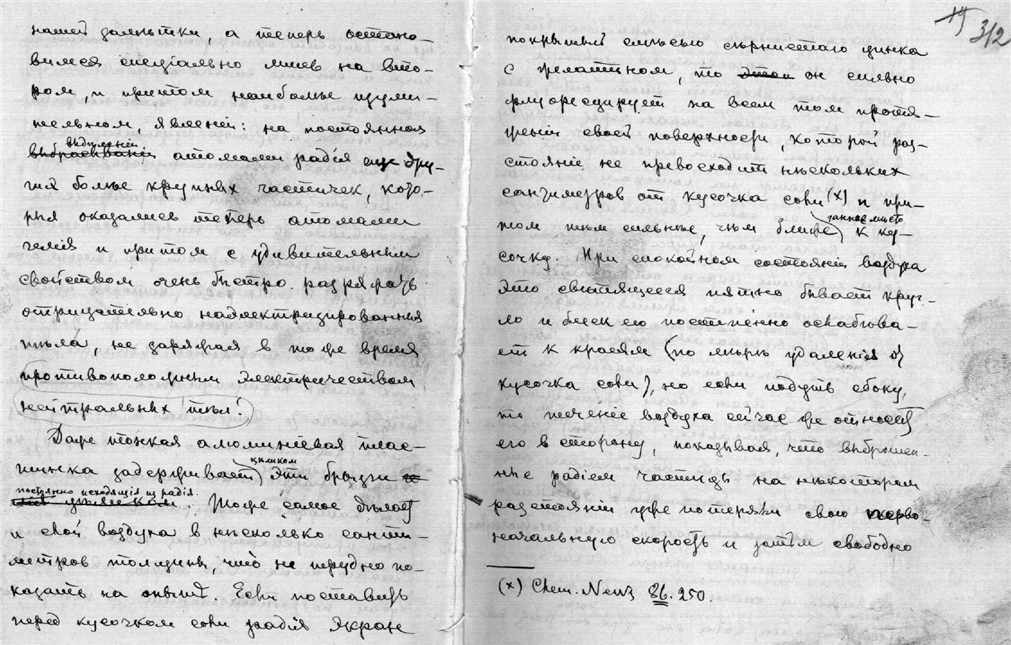 нашей догадки, а теперь остано-
вимся спецiально лишь на вто-
ром, и притом наиболѣе изуми-
тельном, явленiи: на постоянном
выдѣленiи
выбрасыванiи атомами радiя дру-
гих болѣе крупных частичек, кото-
рыя оказались теперь атомами
гелiя и притом с удивительным
свойством очень быстро разряжать
отрицательно наэлектризированныя
тѣла, не заряжая в то же время
противоположным электричеством
нейтральных тѣл.
Даже тонкая алюминiевая плас-
цѣликом
тинка задерживает эти брызги
постоянно исходящiя из радiя
цѣликом. То же самое дѣлает
и слой воздуха в нѣсколько санти-
метров толщины, что не трудно по-
казать на опытѣ. Если поставить
перед кусочком соли радiя экран
19 312
покрытый смѣсью сѣрнистаго цинка
с желатином, то этот он сильно
флуоресцирует на всем том протя-
женiи своей поверхности, которой раз-
стоянiе не превосходит нѣскольких
сантиметров от кусочка соли (x) и при-
данное мѣсто
том тѣм сильнѣе, чѣм ближе к ку-
сочку. При спокойном состоянiи воздуха
это свѣтящееся пятно бывает круг-
ло и блеск его постепенно ослабѣва-
ет к краям (по мѣрѣ удаленiя от
кусочка соли), но если подуть сбоку,
то теченiе воздуха сейчас же относит
его в сторону, показывая, что выброшен-
ные радiем частицы на нѣкотором
разстоянiи уже потеряли свою перво-
начальную скорость и затѣм свободно
(x) Chem. News 86. 250.